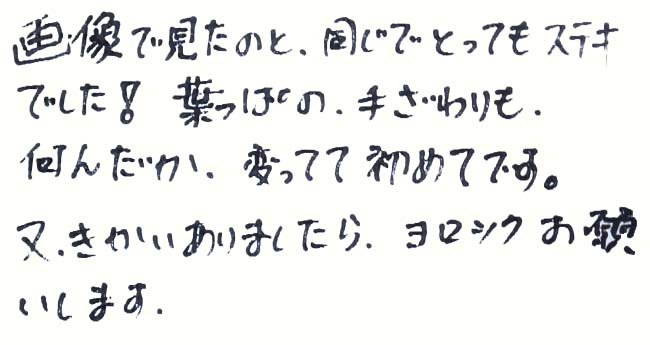 画像で見たのと、同じでとってもステキ
でした！葉っぱの、手ざわりも、
何んだか、変ってて初めてです。
又、きかいありましたら、ヨロシクお願
いします、